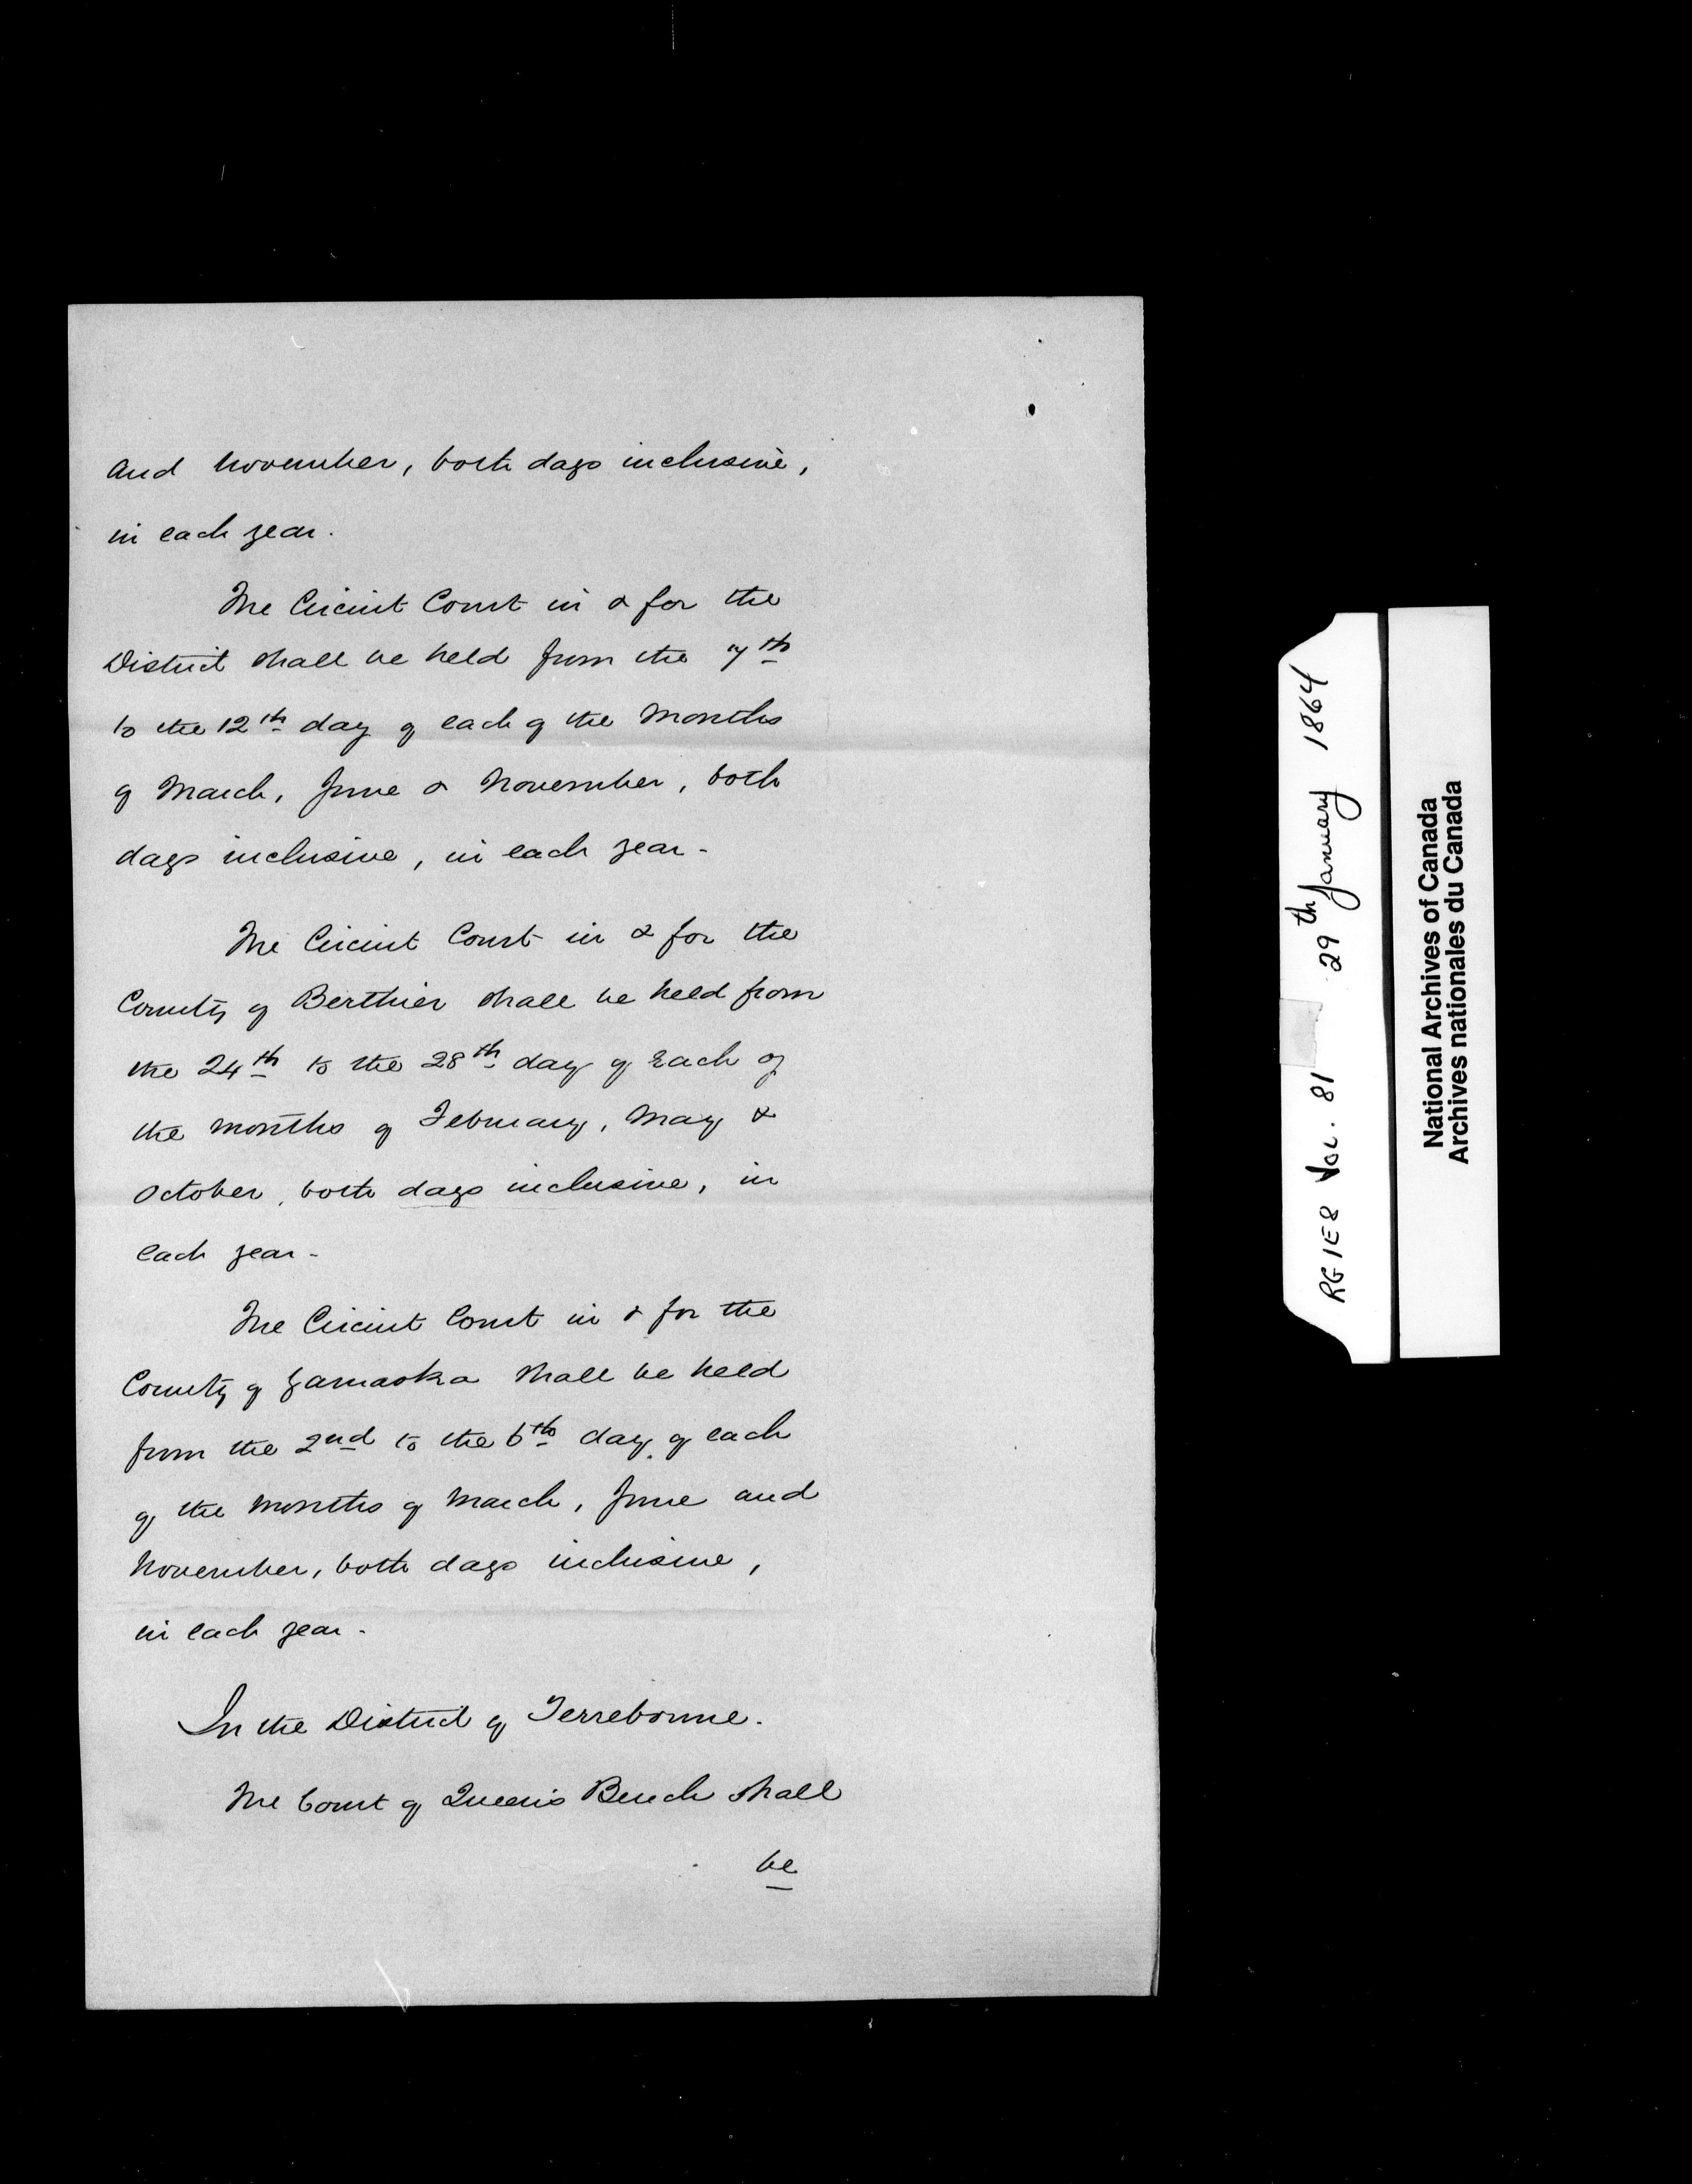 and November, both days inclusive,
in each year.
The Circuit Court in & for the
District shall be held from the 7th
to the 12th day of each of the Months
of March, June & November, both
days inclusive, in each year -
The Circuit Court in & for the
County of Berthier shall be held from
the 24th to the 28th day of Each of
the months of February, May &
October, both days inclusive, in
each year -
The Circuit Court in & for the
County of Yamaska shall be held
from the 2nd to the 6th day of each
of the Months of March, June and
November, both days inclusive,
in each year -
In the District of Terrebonne.
The Court of Queen's Bench shall
be
RG 1 E8 Vol. 81 29th January 1864
National Archives of Canada
Archives nationales du Canada